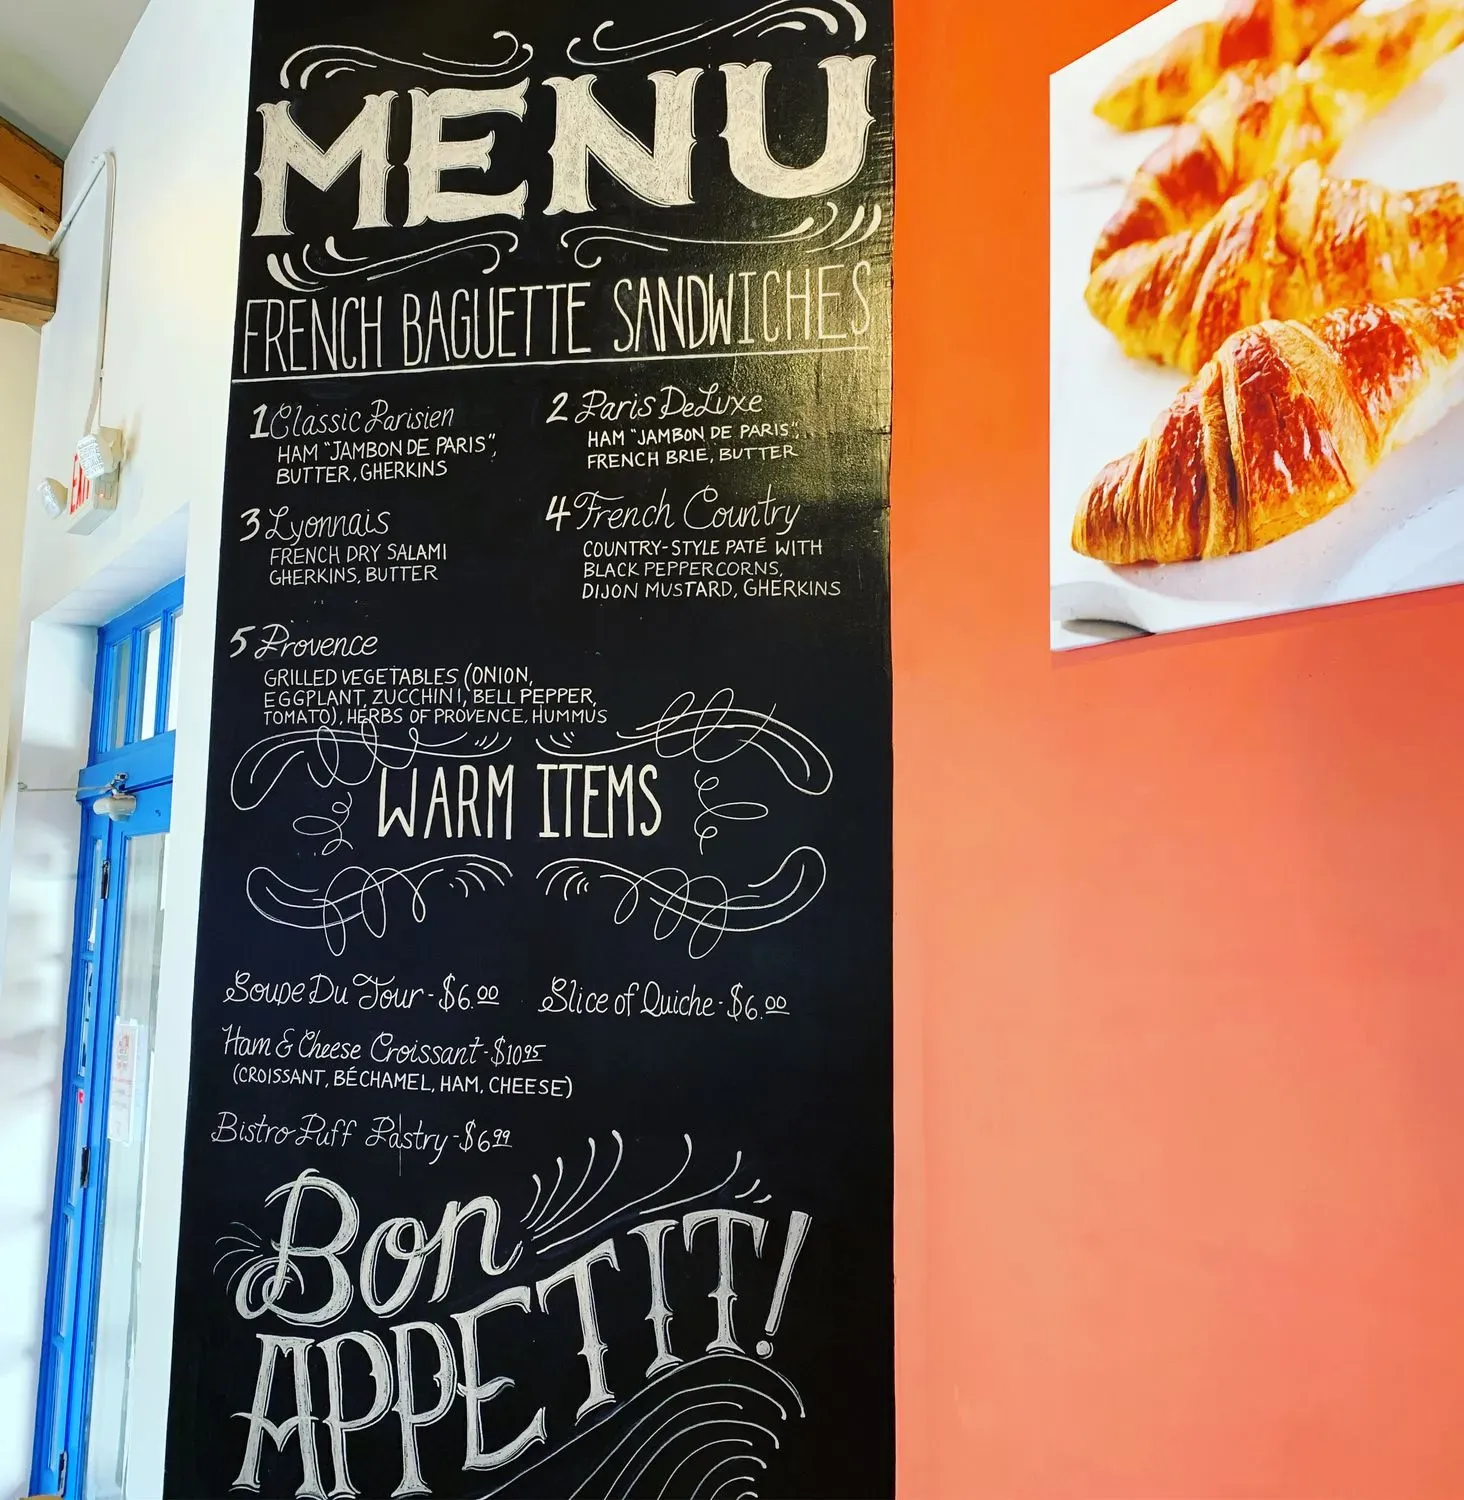 MENU
FRENCH BAGUETTE SANDWICHES
1 Classic Parisien
HAM "JAMBON DE PARIS",
BUTTER, GHERKINS
2 Paris DeLuxe
HAM "JAMBON DE PARIS",
FRENCH BRIE, BUTTER
3 Lyonnais
FRENCH DRY SALAMI
GHERKINS, BUTTER
4 French Country
COUNTRY-STYLE PATÉ WITH
BLACK PEPPERCORNS,
DIJON MUSTARD, GHERKINS
5 Provence
GRILLED VEGETABLES (ONION,
EGGPLANT, ZUCCHINI, BELL PEPPER,
TOMATO), HERBS OF PROVENCE, HUMMUS
WARM ITEMS
Soupe Du Jour - $6.00
Slice of Quiche - $6.00
Ham & Cheese Croissant - $10 95
(CROISSANT, BÉCHAMEL, HAM, CHEESE)
Bistro Puff Pastry - $6 99
Bon
APPETIT!
EXIT